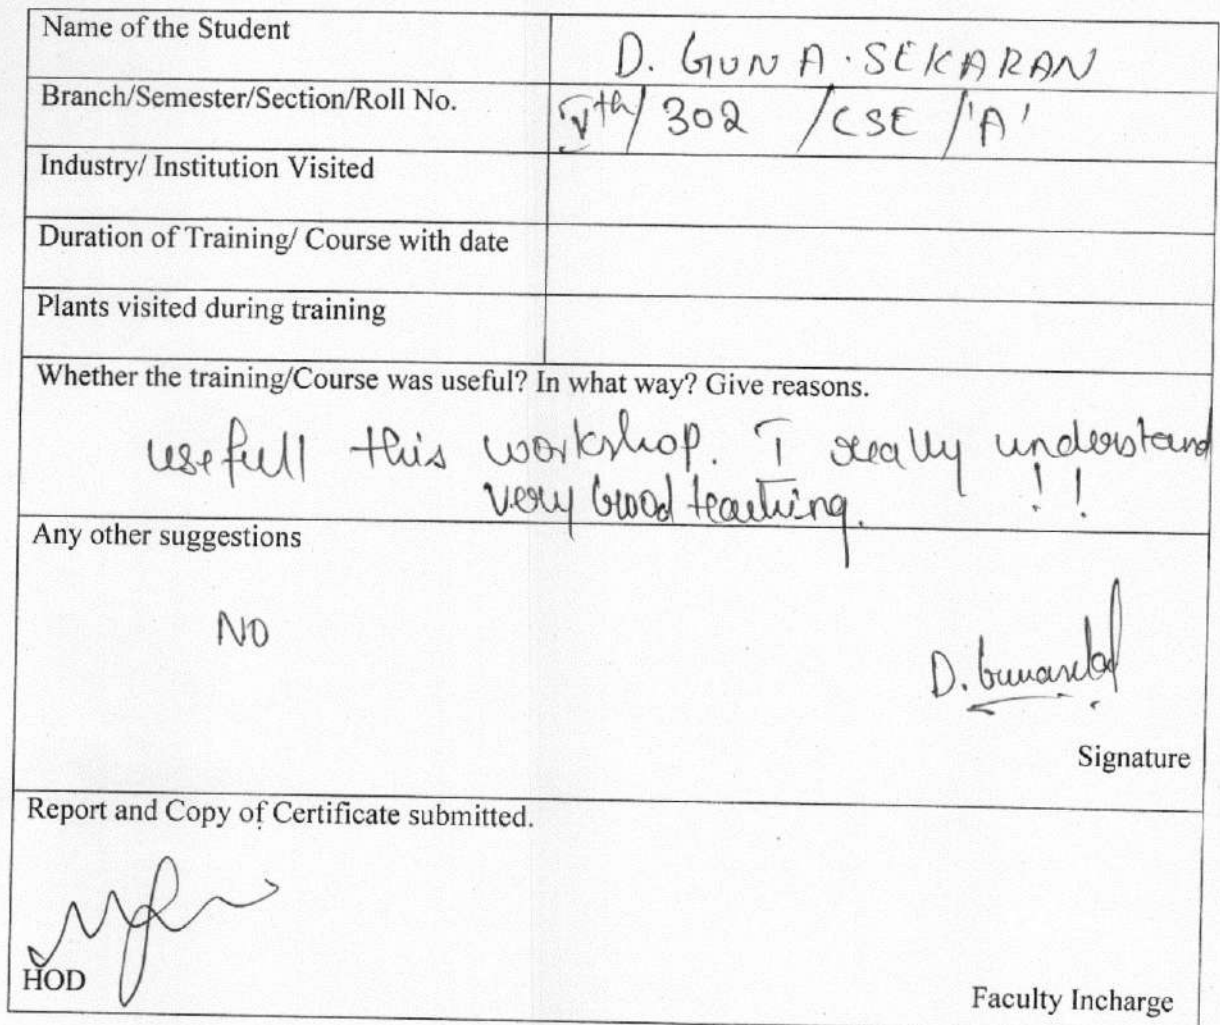 Name of the Student D. GUNA.SEKARAN
Branch/Semester/Section/Roll No. Vth/ 302 /CSE /'A'
Industry/ Institution Visited
Duration of Training/ Course with date
Plants visited during training
Whether the training/Course was useful? In what way? Give reasons.
usefull this workshop. I really understand
very Good teaching. !!
Any other suggestions
NO
D. Gunasekar
Signature
Report and Copy of Certificate submitted.
HOD
Faculty Incharge